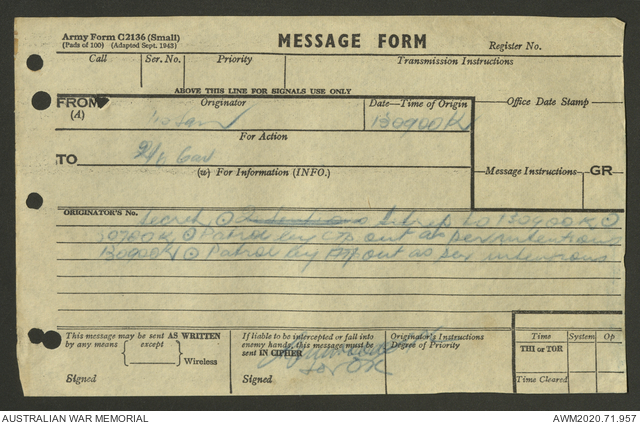 Army Form C2136 (Small)
(Pads of 100) (Adapted Sept. 1943)
MESSAGE FORM
Register No.
Call
Ser. No.
Priority
Transmission Instructions
ABOVE THIS LINE FOR SIGNALS USE ONLY
FROM
(A)
Originator
Date—Time of Origin
Office Date Stamp
130900K
For Action
TO
2/8 Cav
(w) For Information (INFO.)
Message Instructions
GR
ORIGINATOR'S No.
Secret Sitrep to 130900K
Patrol by out as per intentions
130900K Patrol by out as per intentions
This message may be sent AS WRITTEN
by any means except
Wireless
Signed
If liable to be intercepted or fall into
enemy hands, this message must be
sent IN CIPHER
Signed
Originator's Instructions
Degree of Priority
Time
System
Op
THI or TOR
Time Cleared
AUSTRALIAN WAR MEMORIAL
AWM2020.71.957